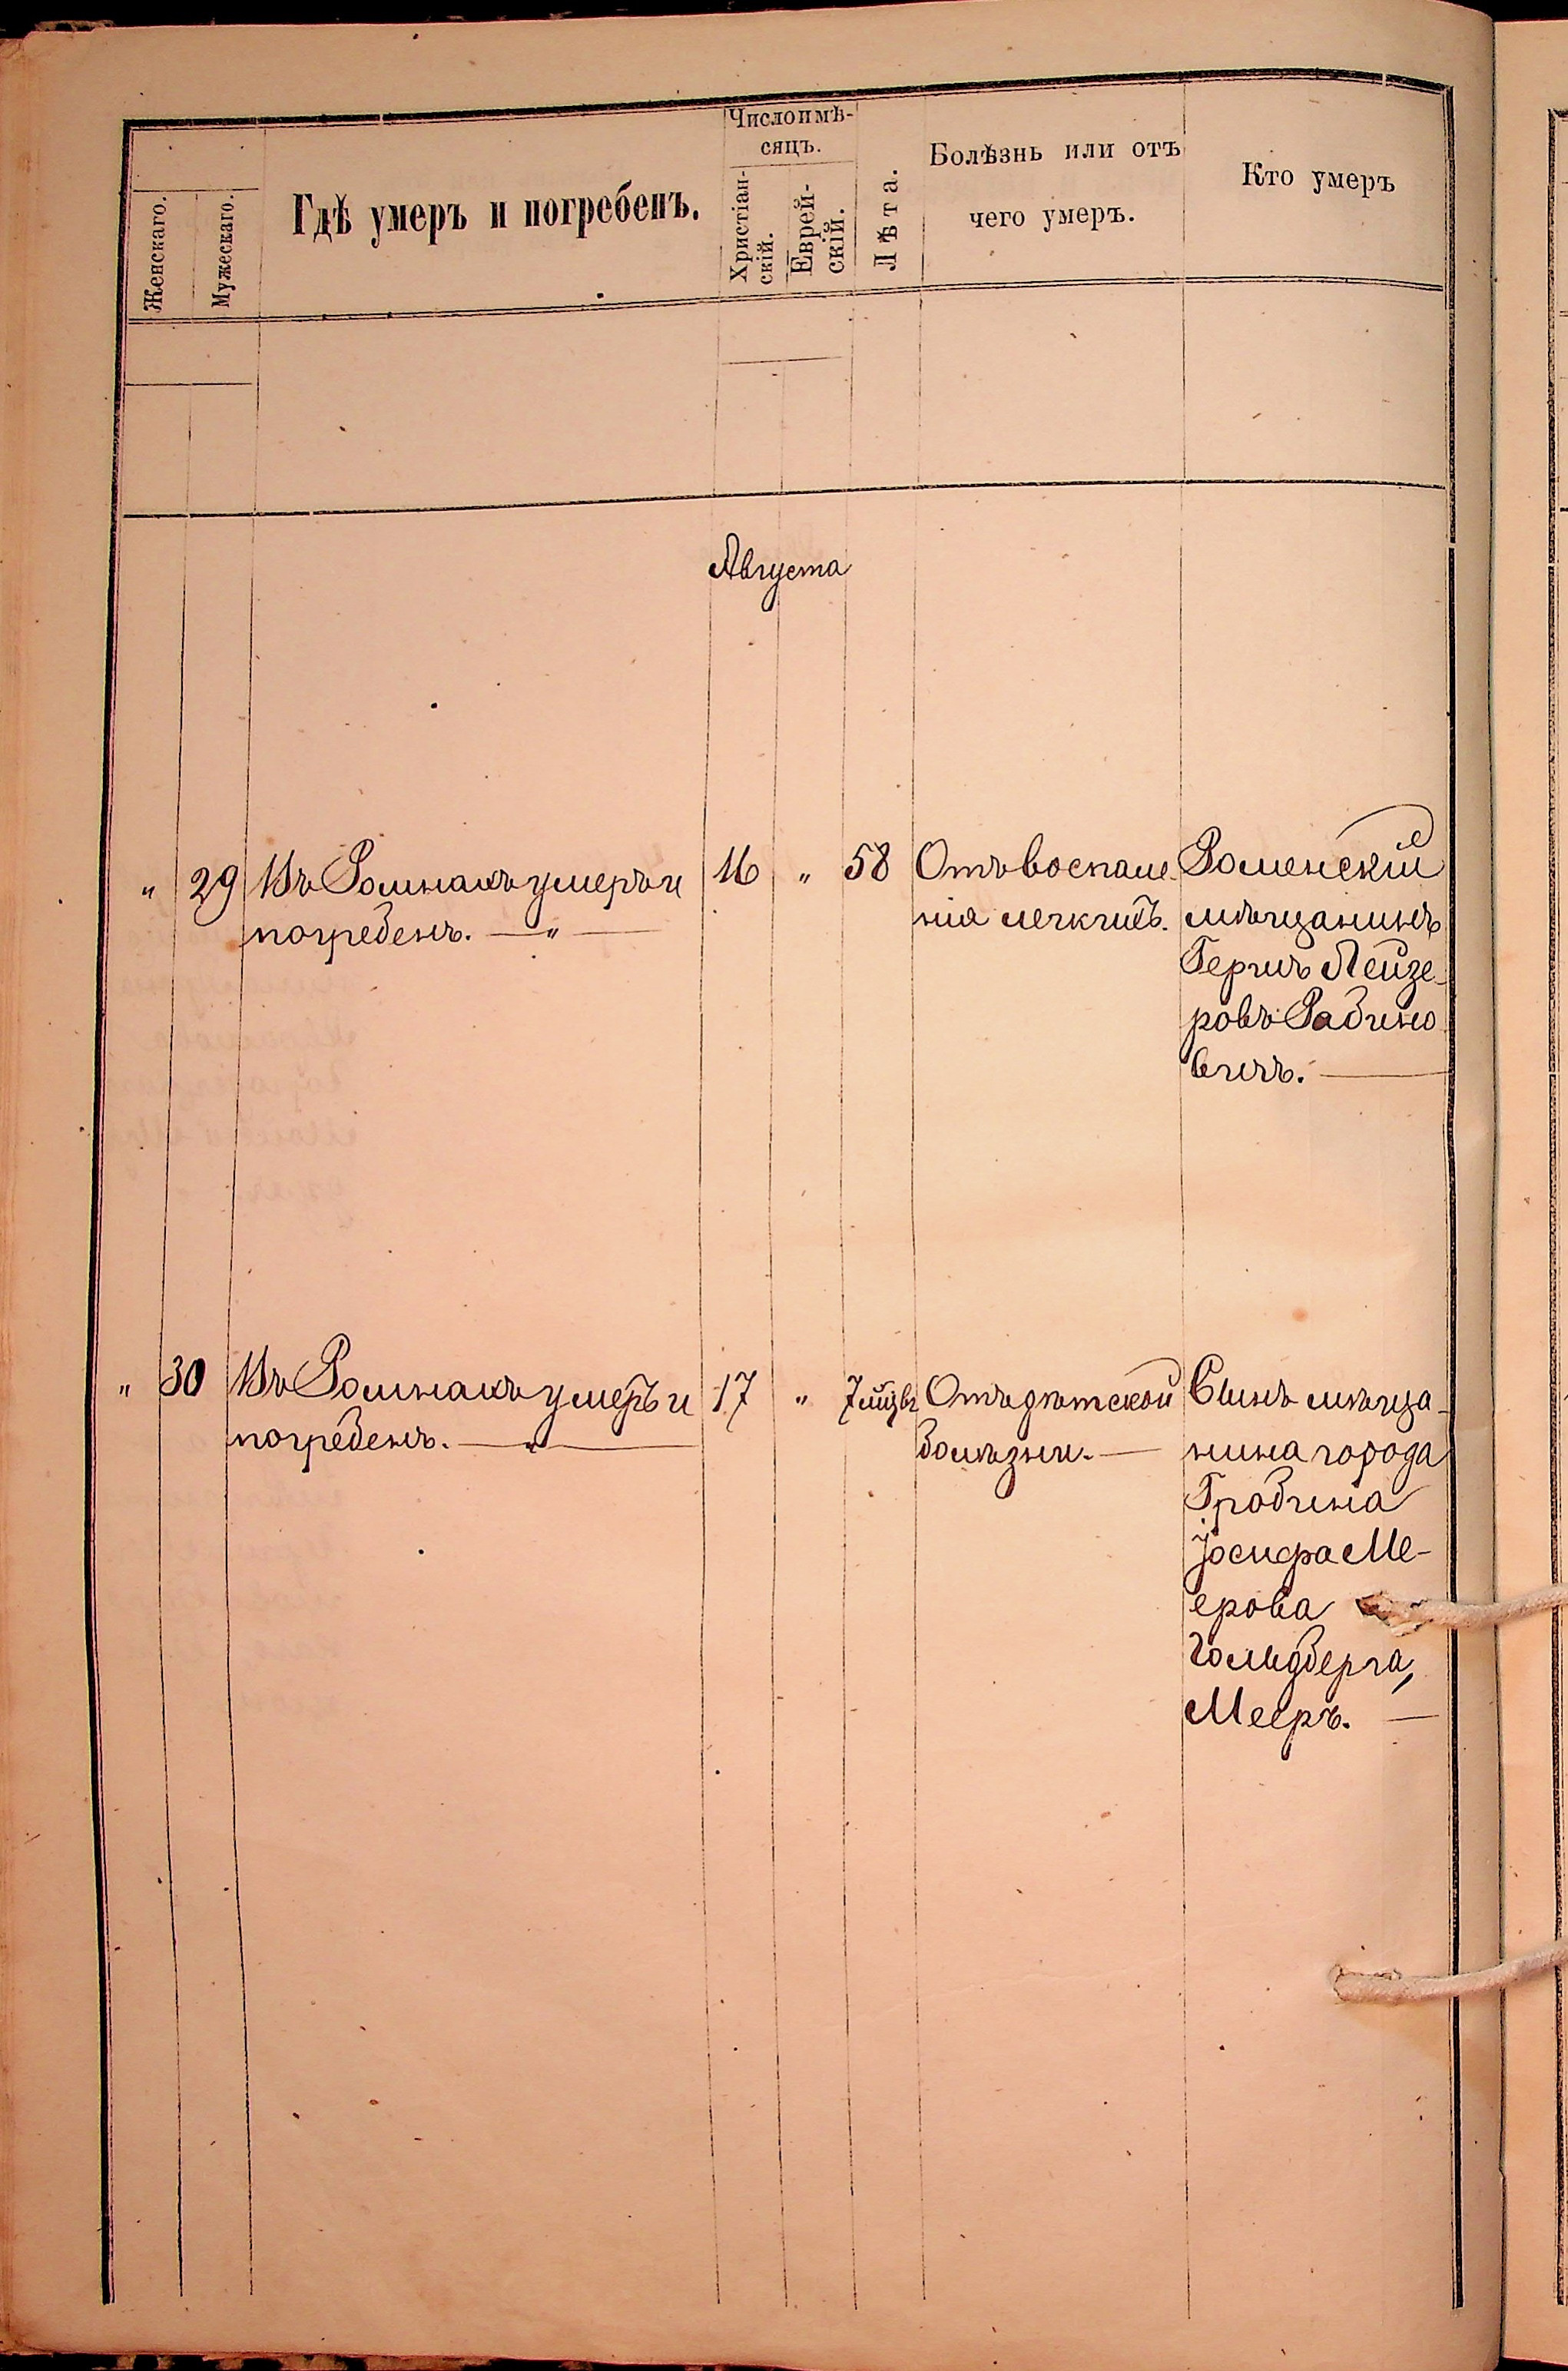 Женскаго.
Мужескаго.
Гдѣ умеръ и погребенъ.
Число и мѣ-
сяцъ.
Христіан-
скій.
Еврей-
скій.
Лѣта.
Болѣзнь или отъ
чего умеръ.
Кто умеръ
Августа
" 29 Въ Ромнахъ умеръ и
погребенъ. — " —
16 " 58
Отъ воспале-
нія легкихъ.
Роменскій
мѣщанинъ
Гершъ Лейзе-
ровъ Рабино-
вичъ. —
" 30 Въ Ромнахъ умеръ и
погребенъ. — " —
17 " 7 мцвъ
Отъ дѣтской
болѣзни. —
Сынъ мѣща-
нина города
Гробина
Іосифа Ме-
ерова
Гольдберга,
Мееръ. —